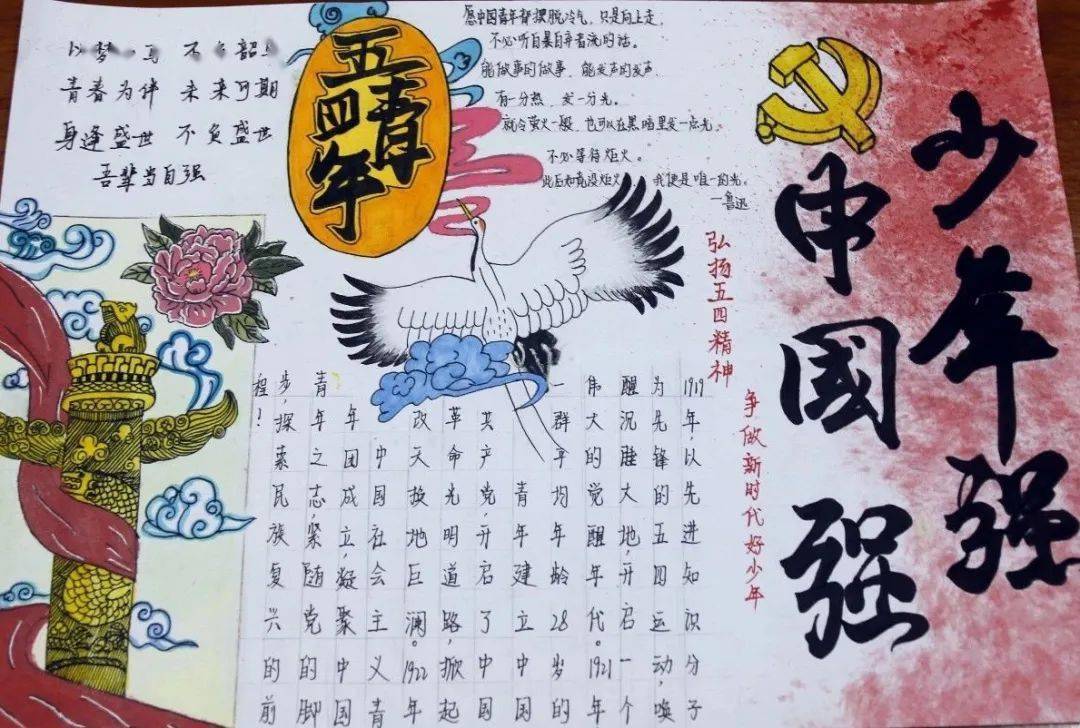 以梦 马 不 韶
青春为伴 未来可期
身逢盛世 不负盛世
吾辈当自强
五四青年
愿中国青年都摆脱冷气，只是向上走，
不必听自暴自弃者流的话。
能做事的做事，能发声的发声
有一分热，发一分光。
就令萤火一般，也可以在黑暗里发一点光，
不必等待炬火。
此后如竟没炬火 我便是唯一的光。
—鲁迅
少年强
中国强
弘扬五四精神
争做新时代好少年
1919年，以先进知识分子
为先锋的五四运动，唤
醒沉睡大地，开启一个
伟大的觉醒年代。1921年
一群平均年龄28岁的
青年建立中国
共产党，开启了中国
革命光明道路，掀起
改天换地巨澜。1922年
中国社会主义青
年团成立，凝聚中国
青年之志，紧随党的脚
步，探索民族复兴的前
程！